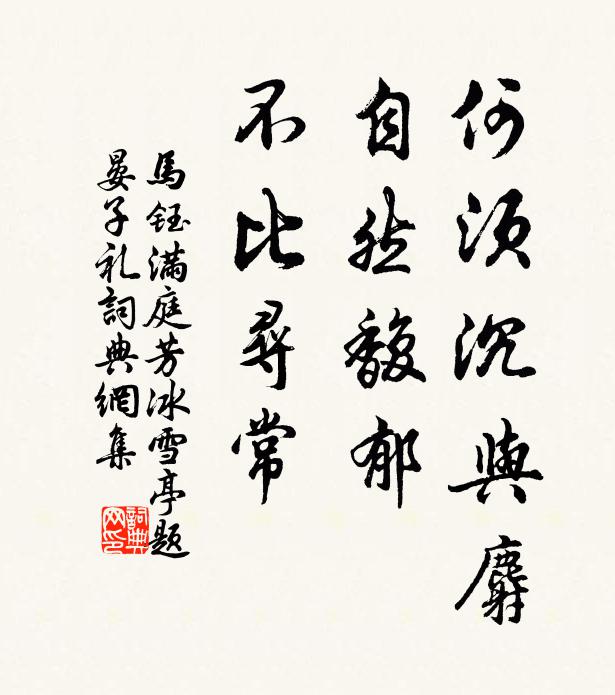 何須沉與麝
自然馥郁
不比尋常
馬鈺滿庭芳冰雪亭題
晏子礼詞典網集
詞典网印